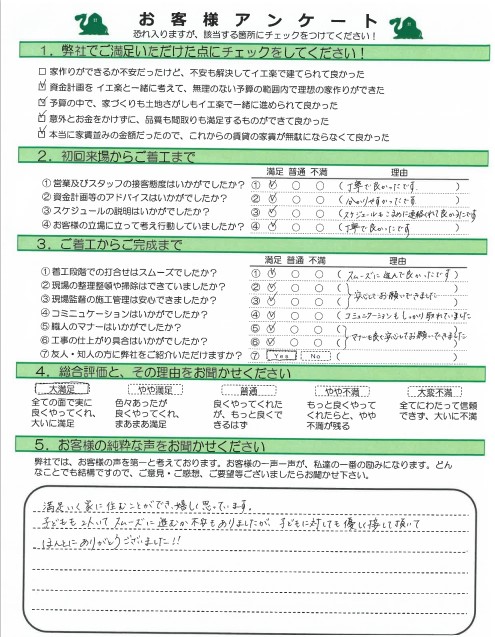 お客様アンケート
恐れ入りますが、該当する箇所にチェックをつけてください！
1．弊社でご満足いただけた点にチェックをしてください！
□ 家作りができるか不安だったけど、不安も解決してイエ楽で建てられて良かった
☑ 資金計画を イエ楽と一緒に考えて、無理のない予算の範囲内で理想の家作りができた
☑ 予算の中で、家づくりも土地さがしもイエ楽で一緒に進められて良かった
☑ 意外とお金をかけずに、品質も間取りも満足するものができて良かった
☑ 本当に家賃並みの金額だったので、これからの賃貸の家賃が無駄にならなくて良かった
2．初回来場からご着工まで
満足 普通 不満 理由
①営業及びスタッフの接客態度はいかがでしたか？ ① ○ ○ （丁寧で良かったです。）
②資金計画等のアドバイスはいかがでしたか？ ② ○ ○ （分かりやすかったです。）
③スケジュールの説明はいかがでしたか？ ③ ○ ○ （スケジュールもこまめに連絡くれて良かったです）
④お客様の立場に立って考え行動していましたか？ ④ ○ ○ （丁寧で良かったです。）
3．ご着工からご完成まで
満足 普通 不満 理由
①着工段階での打合せはスムーズでしたか？ ① ○ ○ （スムーズに進んで良かったです）
②現場の整理整頓や掃除はできていましたか？ ② ○ ○
③現場監督の施工管理は安心できましたか？ ③ ○ ○ 安心してお願いできました
④コミニュケーションはいかがでしたか？ ④ ○ ○ （コミュニケーションもしっかり取れていました）
⑤職人のマナーはいかがでしたか？ ⑤ ○ ○
⑥工事の仕上がり具合はいかがでしたか？ ⑥ ○ ○ マナーも良く安心してお願いできました
⑦友人・知人の方に弊社をご紹介いただけますか？ ⑦ Yes No
4．総合評価と、その理由をお聞かせください
大満足 やや満足 普通 やや不満 大変不満
全ての面で実に 色々あったが 良くやってくれた もっと良くやって 全てにわたって信頼
良くやってくれ、 良くやってくれ、 が、もっと良くで くれたらと、やや できず、大いに不満
大いに満足 まあまあ満足 きるはず 不満が残る
5．お客様の純粋な声をお聞かせください
弊社では、お客様の声を第一と考えております。お客様の一声一声が、私達の一番の励みになります。どん
なことでも結構ですので、ご意見・ご感想、ご要望等ございましたらお聞かせ下さい。
満足いく家に住むことができ、嬉しく思っています。
子どもも2人いてスムーズに進むか不安もありましたが、子どもに対しても優しく接して頂いて
ほんとにありがとうございました!!